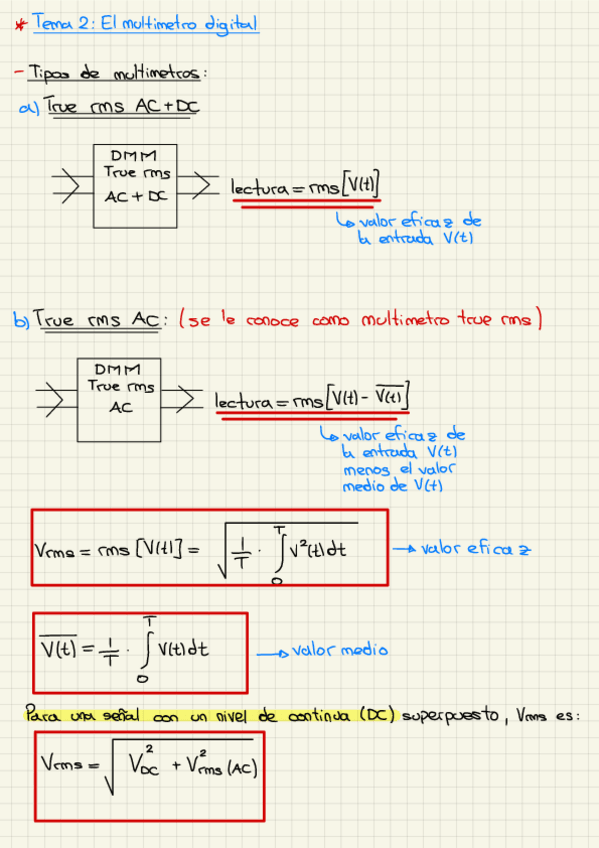 * Tema 2: El multimetro digital
- Tipos de multimetros:
a) True rms AC+DC
DMM
True rms
AC + DC
lectura = rms[V(t)]
↳ valor eficaz de
la entrada V(t)
b) True rms AC: (se le conoce como multimetro true rms)
DMM
True rms
AC
lectura = rms[V(t) - \overline{V(t)}]
↳ valor eficaz de
la entrada V(t)
menos el valor
medio de V(t)
Vrms = rms [V(t)] = √(1/T · ∫₀ᵀ v²(t) dt) → valor eficaz
\overline{V(t)} = 1/T · ∫₀ᵀ V(t) dt → valor medio
Para una señal con un nivel de continua (DC) superpuesto, Vrms es:
Vrms = √(V²DC + V²rms (AC))